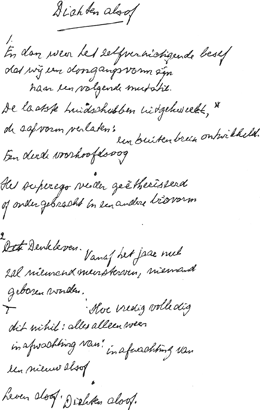 Dichten alsof
1
En dan weer het zelfvernietigende besef
dat wij een doorgangsvorm zijn
naar een volgende mutatie.
De laatste huidschubben uitgehoest,
de aapvorm verlaten:
een buitenbrein ontwikkeld.
Een derde voorhoofdsoog
Het superego verder geëtheriseerd
of ondergebracht in een andere biovorm
2
Denkleven. Vanaf het jaar met
zal niemand meer sterven, niemand
geboren worden.
Hoe vredig volledig
dit nihil: alles alleen weer
in afwachting van: in afwachting van
een nieuw alsof
Leven alsof. Dichten alsof.